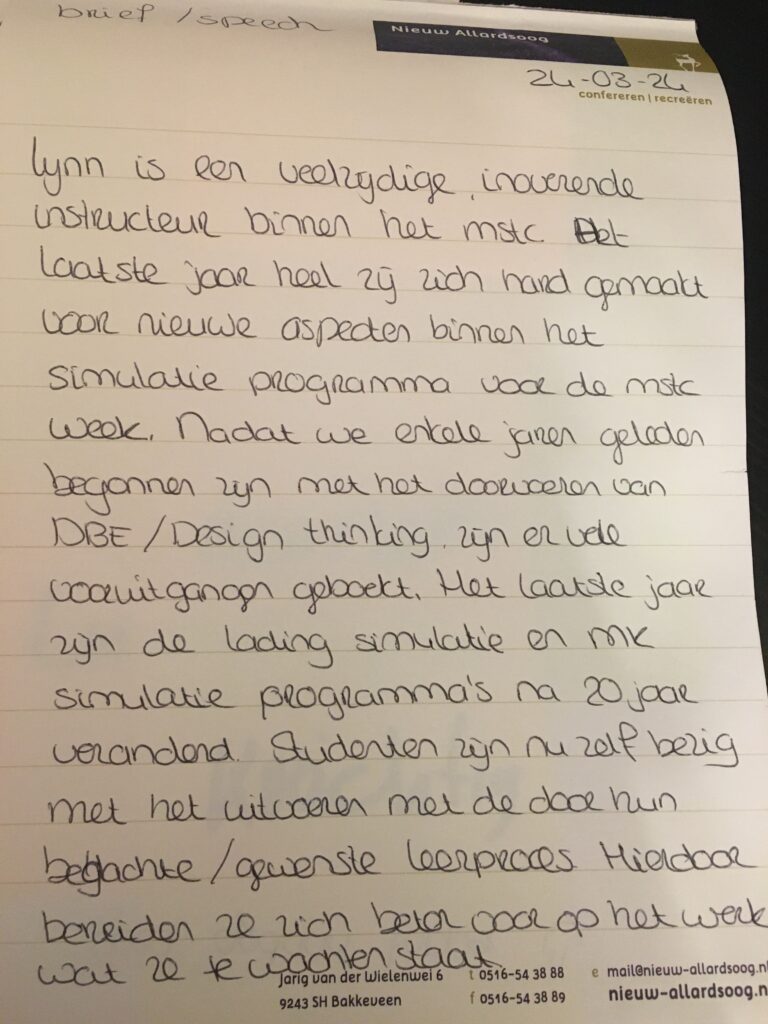 brief / speech
Nieuw Allardsoog
24-03-24
confereren | recreëren
Lynn is een veelzydige, inoverende
instructeur binnen het mstc. Het
laatste jaar heel zij zich hard gemaakt
voor nieuwe aspecten binnen het
simulatie programma voor de mstc
week. Nadat we enkele jaren geleden
begonnen zijn met het doorvoeren van
DBE / Design thinking, zijn er vele
vooruitgangen geboekt. Het laatste jaar
zijn de lading simulatie en MK
simulatie programma's na 20 jaar
veranderd. Studenten zijn nu zelf bezig
met het uitvoeren met de door hun
bedachte / gewenste leerproces Hierdoor
bereiden ze zich beter voor op het werk
wat ze te wachten staat.
Jarig van der Wielenwei 6 t 0516-54 38 88 e mail@nieuw-allardsoog.nl
9243 SH Bakkeveen f 0516-54 38 89 nieuw-allardsoog.n